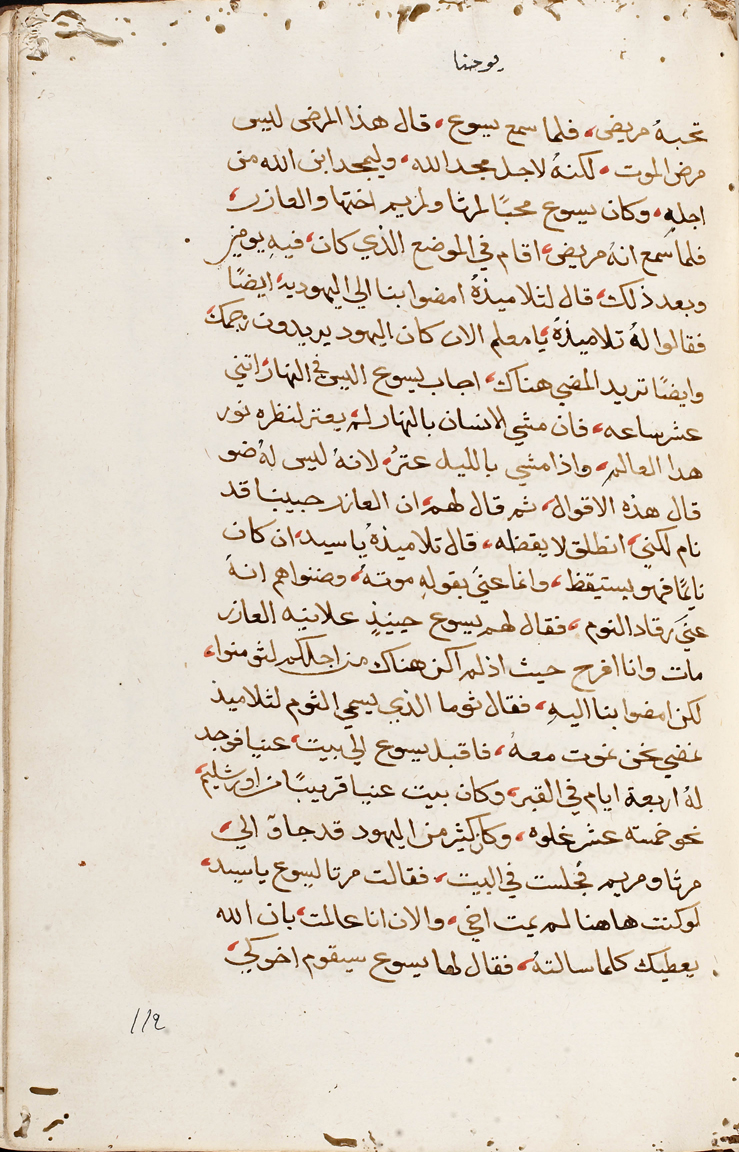 يوحنا
تحبهُ مريض، فلما سمع يسوع، قال هذا المرض ليس
مرض الموت، لكنهُ لاجل مجد الله، وليمجد ابن الله من
اجلهِ، وكان يسوع محبًا لمرثا ولمريم اختها والعازر،
فلما سمع انهُ مريض، اقام في الموضع الذي كان، فيهِ يوميز
وبعد ذلك، قال لتلاميذهُ امضوا بنا الي اليهوديه، ايضًا
فقالوا لهُ تلاميذهُ، يا معلم الان كان اليهود يريدون رجمك،
وايضًا تريد المضي هناك، اجاب يسوع اليس في النهار، اتني
عشر ساعه، فان مشي الانسان بالنهار لم، يعتر لنظره نور
هدا العالم، واذا مشي بالليل عترُ، لانهُ ليس لهُ ضو
قال هذه الاقوال، ثم قال لهم، ان العازر حبيبنا قد
نام لكني، انطلق لايقظه، قال تلاميذهُ يا سيد، ان كان
نايمًا فهو يستيقظ، وانما عنيَ بقولهِ موتهُ، وضنوا هم انهُ
عنيَ رقاد النوم، فقال لهم يسوع حينيذٍ علانيه العازر
مات وانا افرح حيث اذ لم اكن هناك من اجلكم لتومنوا،
لكن امضوا بنا اليهِ، فقال ثوما الذي يسمي التوم لتلاميذ
نمضي نحن نموت معهُ، فاقبل يسوع الي بيت، عنيا فوجد
لهُ اربعة ايام في القبر، وكان بيت عنيا قريبًا من اورشليم،
نحو خمسته عشر غلوه، وكان كثير من اليهود قد جاو الي،
مرثا ومريم، فجلست في البيت، فقالت مرتا ليسوع يا سيد،
لو كنت هاهنا لم يمت اخي، والان انا عالمت، بان الله
يعطيك كلما سالتهُ، فقال لها يسوع سيقوم اخوكي،
١١٩